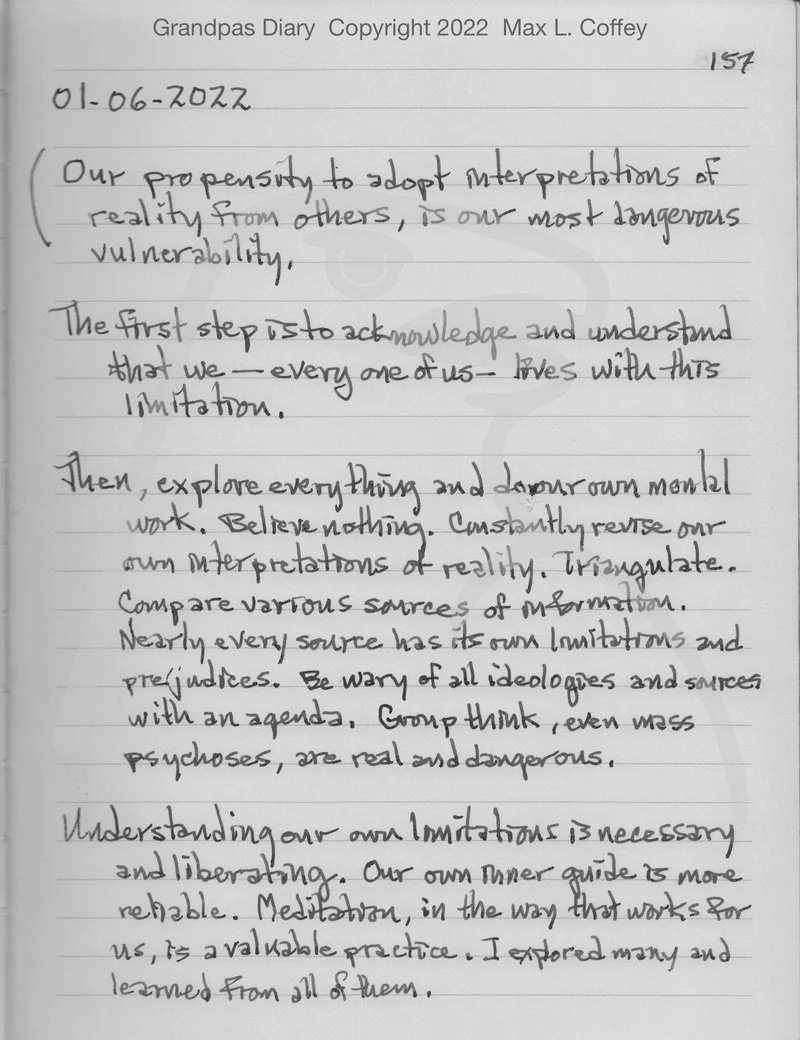 Grandpas Diary Copyright 2022 Max L. Coffey
157
01-06-2022
Our propensity to adopt interpretations of
reality from others, is our most dangerous
vulnerability.
The first step is to acknowledge and understand
that we — every one of us — lives with this
limitation.
Then, explore everything and do our own mental
work. Believe nothing. Constantly revise our
own interpretations of reality. Triangulate.
Compare various sources of information.
Nearly every source has its own limitations and
prejudices. Be wary of all ideologies and sources
with an agenda. Group think, even mass
psychoses, are real and dangerous.
Understanding our own limitations is necessary
and liberating. Our own inner guide is more
reliable. Meditation, in the way that works for
us, is a valuable practice. I explored many and
learned from all of them.